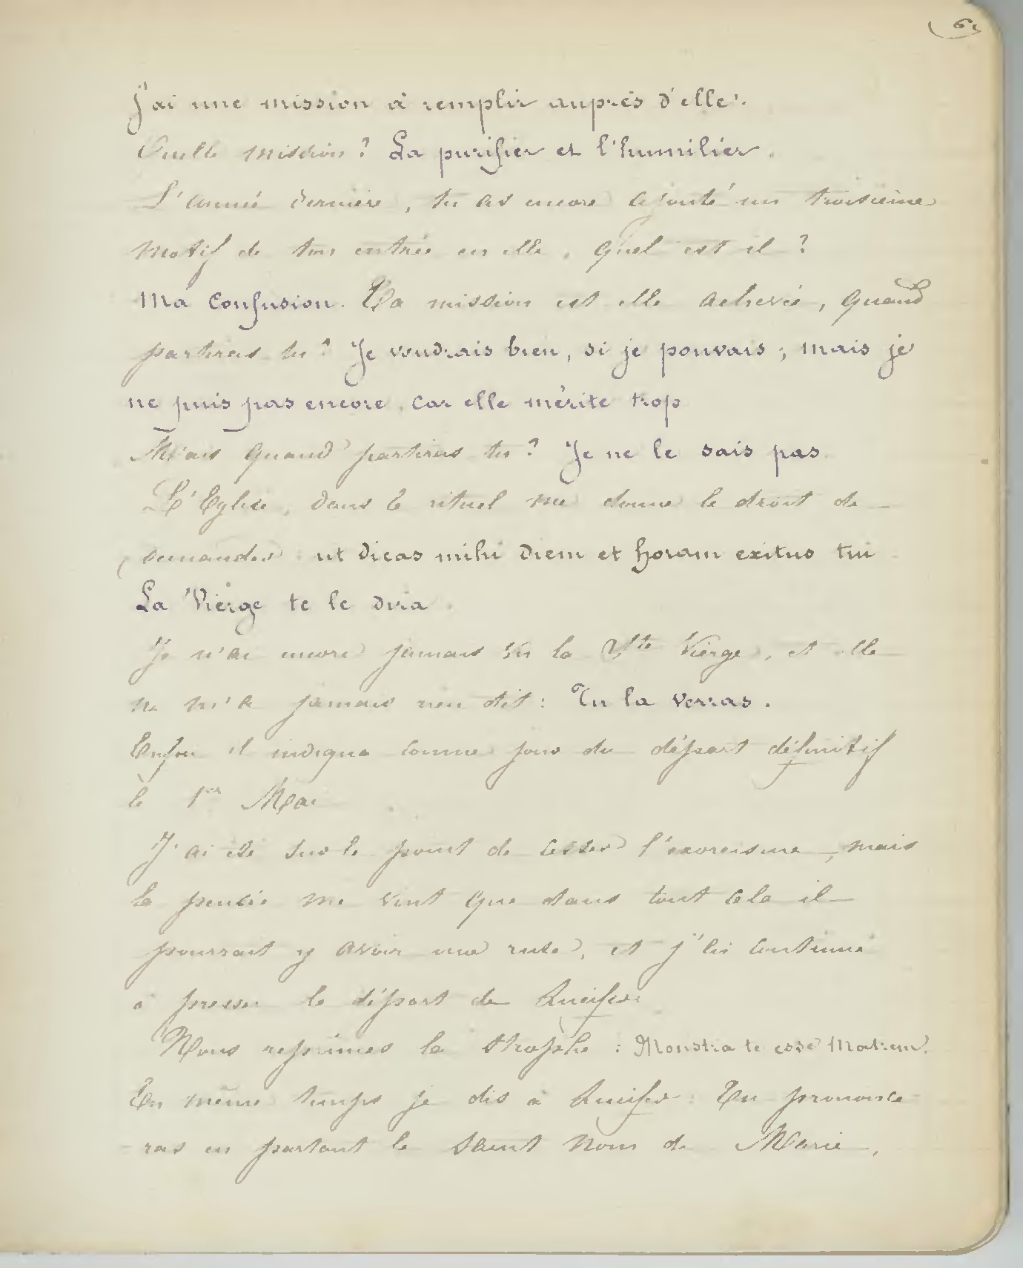 6
j'ai une mission à remplir auprès d'elle.
Quelle mission? La purifier et l'humilier.
L'année dernière, tu as encore ajouté un troisième
motif de ton entrée en elle, quel est il?
Ma confusion. Ta mission est elle achevée, quand
partiras tu? Je voudrais bien, si je pouvais; mais je
ne puis pas encore, car elle mérite trop
Mais quand partiras tu? Je ne le sais pas.
L'Eglise, dans le rituel me donne le droit de
demander: ut dicas mihi diem et horam exitus tui
La Vierge te le dira.
Je n'ai encore jamais vu la Ste Vierge, et elle
ne m'a jamais rien dit: Tu la verras.
Enfin il indiqua comme jour du départ définitif
le 1er Mai
J'ai été sur le point de cesser l'exorcisme, mais
la pensée me vint que dans tout cela il
pourrait y avoir une ruse, et j'ai continué
à presser le départ de Lucifer.
Nous reprîmes la strophe: Monstra te esse Matrem.
En même temps je dis à Lucifer: Tu prononce-
ras en partant le saint nom de Marie,